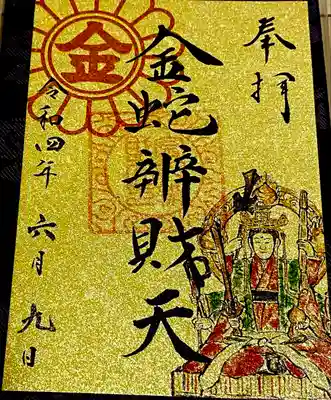 奉拝
金
金蛇辨財天
令和四年 六月 九日